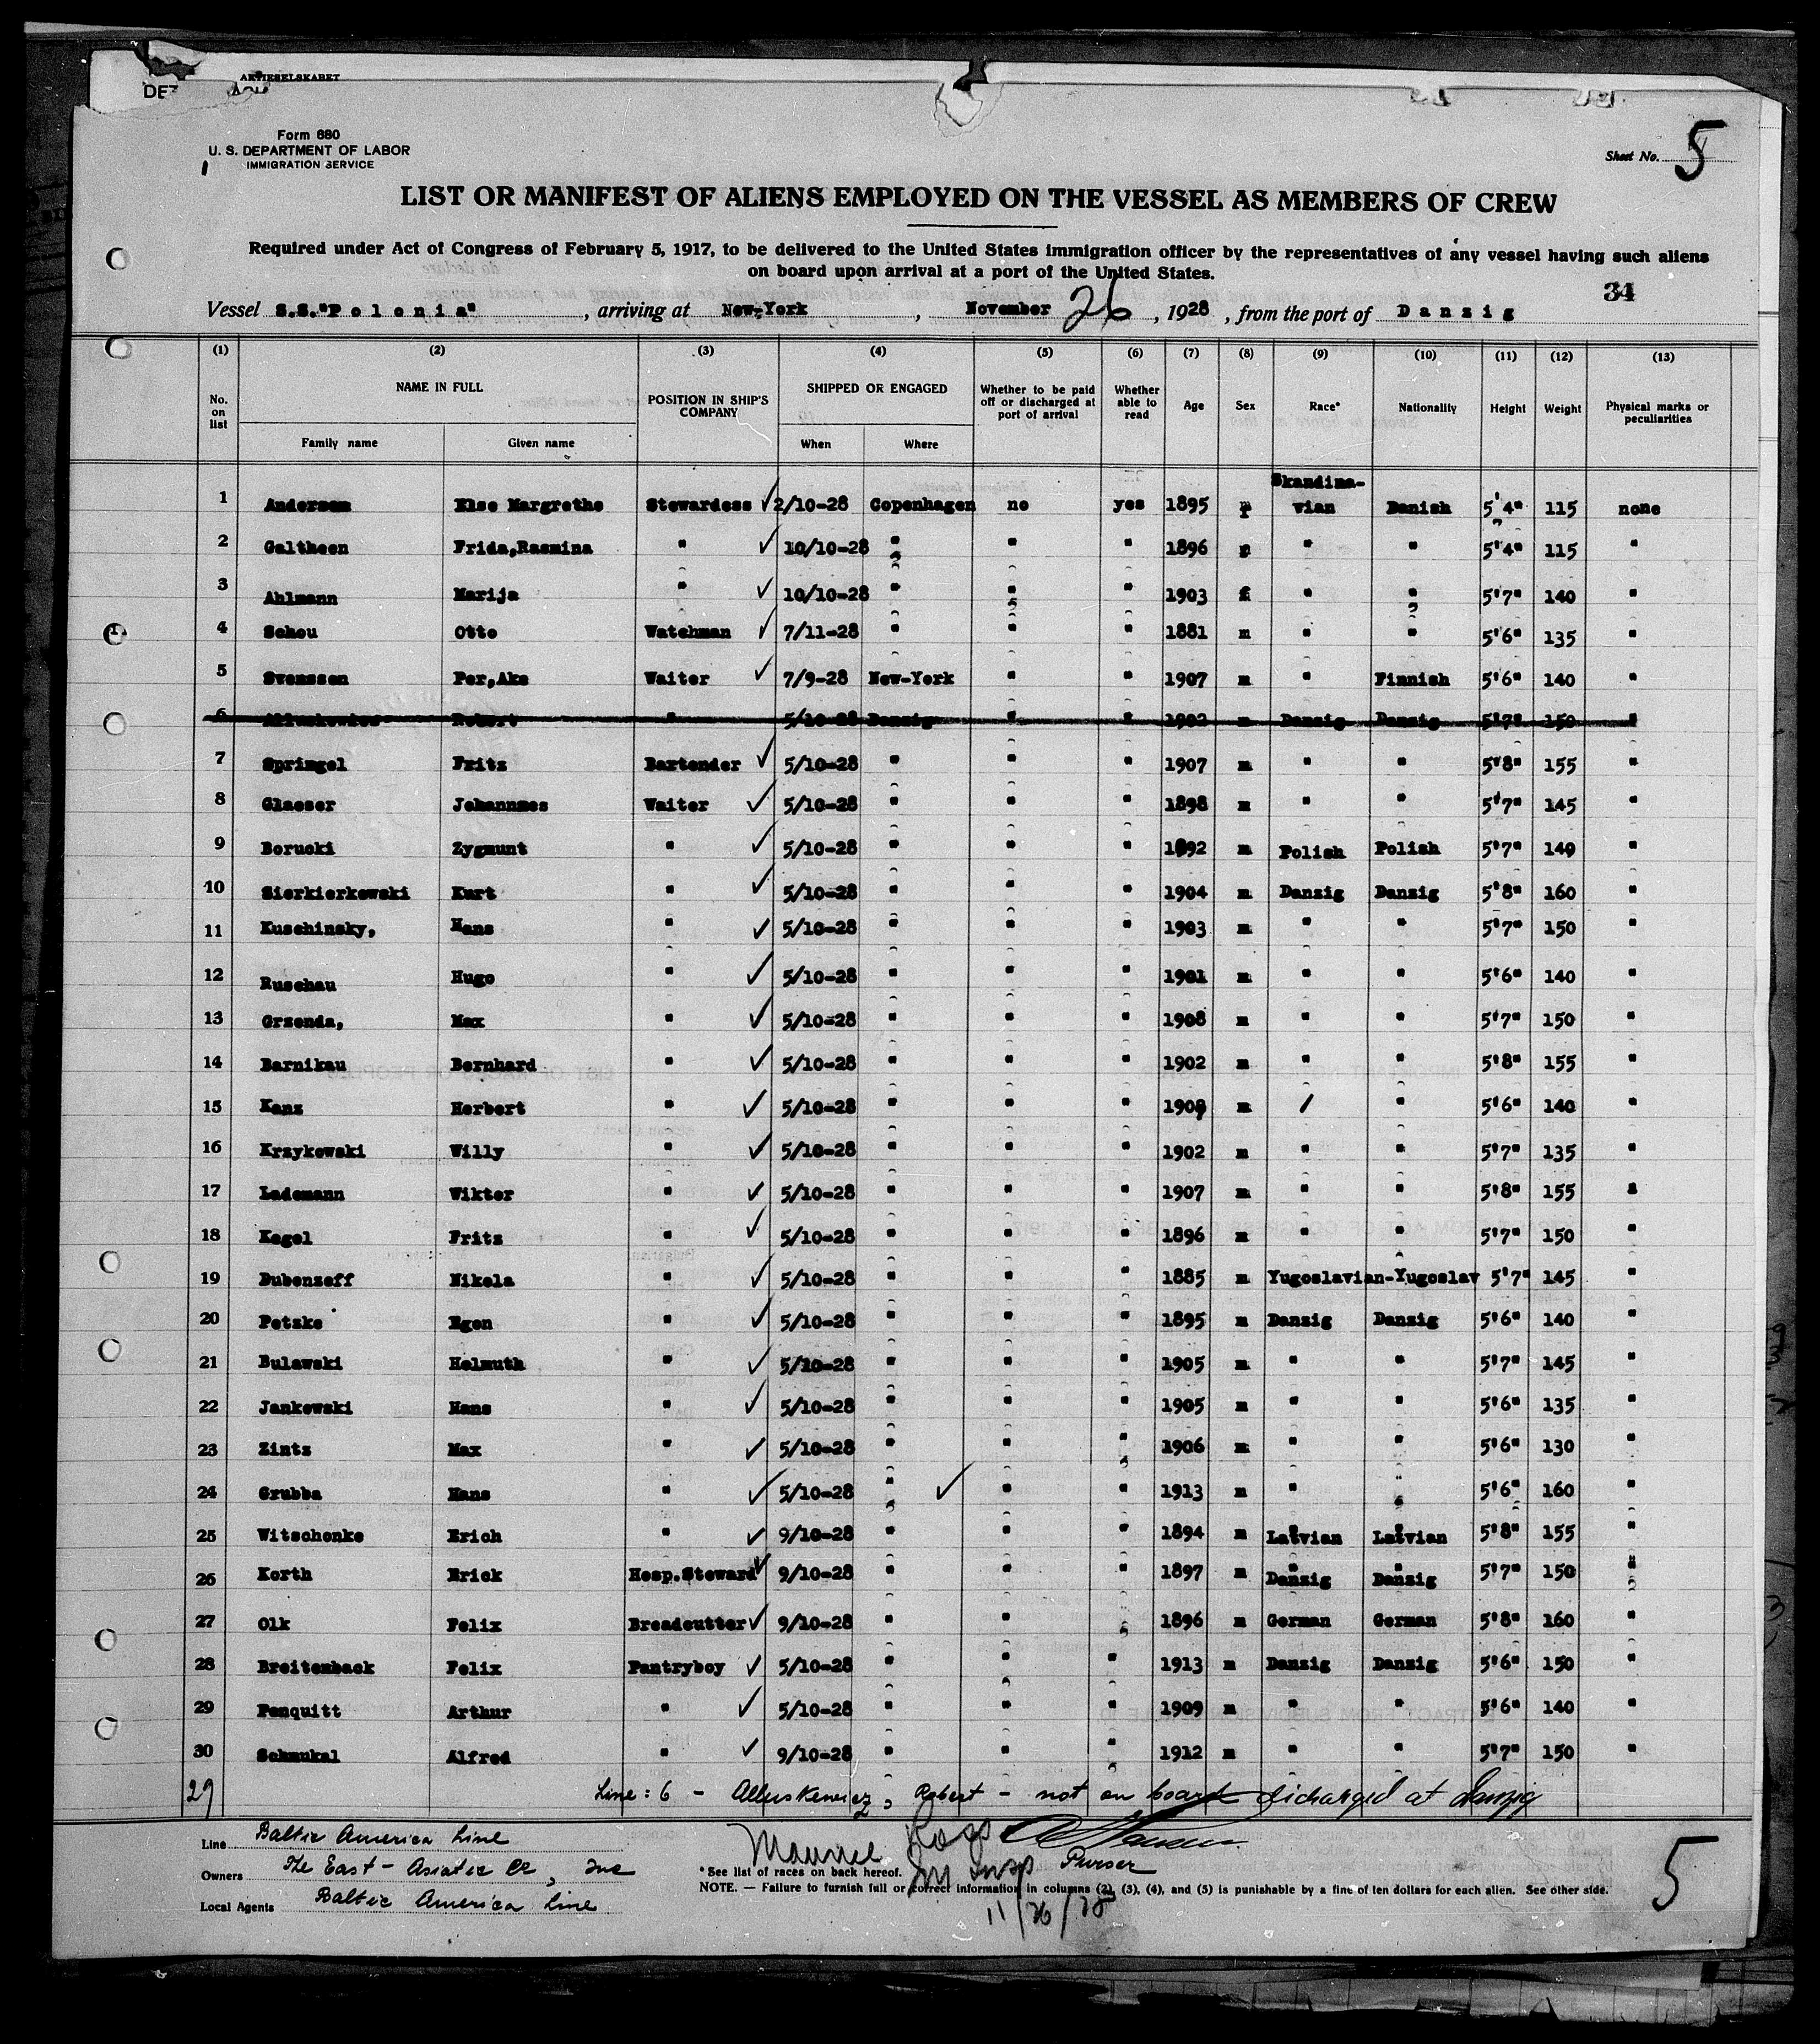 AKTIESELSKABET
Form 680
U. S. DEPARTMENT OF LABOR
IMMIGRATION SERVICE
Sheet No. 5
LIST OR MANIFEST OF ALIENS EMPLOYED ON THE VESSEL AS MEMBERS OF CREW
Required under Act of Congress of February 5, 1917, to be delivered to the United States immigration officer by the representatives of any vessel having such aliens
on board upon arrival at a port of the United States.
34
Vessel S.S."Polonia", arriving at New-York, November 26, 1928, from the port of Danzig
(1) (2) (3) (4) (5) (6) (7) (8) (9) (10) (11) (12) (13)
No. on list NAME IN FULL Family name Given name POSITION IN SHIP'S COMPANY SHIPPED OR ENGAGED When Where Whether to be paid off or discharged at port of arrival Whether able to read Age Sex Race* Nationality Height Weight Physical marks or peculiarities
1 Andersen Else Margrethe Stewardess ✓ 2/10-28 Copenhagen no yes 1895 f Skandina-vian Danish 5'4" 115 none
2 Galtheen Frida,Rasmina " ✓ 10/10-28 " " " 1896 f " " 5'4" 115 "
3 Ahlmann Marija " ✓ 10/10-28 " " " 1903 f " " 5'7" 140 "
4 Schou Otto Watchman ✓ 7/11-28 " " " 1881 m " " 5'6" 135 "
5 Svenssen Per,Ake Waiter ✓ 7/9-28 New-York " " 1907 m " Finnish 5'6" 140 "
6 Robert " 5/10-28 Danzig " " 1902 m Danzig Danzig 5'7" 150 "
7 Springel Fritz Bartender ✓ 5/10-28 " " " 1907 m " " 5'8" 155 "
8 Glaeser Johannmes Waiter ✓ 5/10-28 " " " 1898 m " " 5'7" 145 "
9 Borucki Zygmunt " ✓ 5/10-28 " " " 1892 m Polish Polish 5'7" 140 "
10 Sierkierkowski Kurt " ✓ 5/10-28 " " " 1904 m Danzig Danzig 5'8" 160 "
11 Kuschinsky, Hans " ✓ 5/10-28 " " " 1903 m " " 5'7" 150 "
12 Ruschau Hugo " ✓ 5/10-28 " " " 1901 m " " 5'6" 140 "
13 Grzenda, Max " ✓ 5/10-28 " " " 1908 m " " 5'7" 150 "
14 Barnikau Bernhard " ✓ 5/10-28 " " " 1902 m " " 5'8" 155 "
15 Kanz Herbert " ✓ 5/10-28 " " " 1909 m / " 5'6" 140 "
16 Krzykowski Willy " ✓ 5/10-28 " " " 1902 m " " 5'7" 135 "
17 Lademann Wiktor " ✓ 5/10-28 " " " 1907 m " " 5'8" 155 "
18 Kegel Fritz " ✓ 5/10-28 " " " 1896 m " " 5'7" 150 "
19 Dubenzeff Nikola " ✓ 5/10-28 " " " 1885 m Yugoslavian-Yugoslav 5'7" 145 "
20 Petzke Egon " ✓ 5/10-28 " " " 1895 m Danzig Danzig 5'6" 140 "
21 Bulawski Helmuth " ✓ 5/10-28 " " " 1905 m " " 5'7" 145 "
22 Jankowski Hans " ✓ 5/10-28 " " " 1905 m " " 5'6" 135 "
23 Zintz Max " ✓ 5/10-28 " " " 1906 m " " 5'6" 130 "
24 Grubba Hans " ✓ 5/10-28 " ✓ " " 1913 m " " 5'6" 160 "
25 Witschonke Erich " ✓ 9/10-28 " " " 1894 m Latvian Latvian 5'8" 155 "
26 Korth Erick Hosp.Steward ✓ 9/10-28 " " " 1897 m Danzig Danzig 5'7" 150 "
27 Olk Felix Breadcutter ✓ 9/10-28 " " " 1896 m German German 5'8" 160 "
28 Breitenback Felix Pantryboy ✓ 5/10-28 " " " 1913 m Danzig Danzig 5'6" 150 "
29 Penquitt Arthur " ✓ 5/10-28 " " " 1909 m " " 5'6" 140 "
30 Schmukal Alfred " ✓ 9/10-28 " " " 1912 m " " 5'7" 150 "
29 Line: 6 - Alluskewicz, Robert - not on board dicharged at Danzig
Line Baltic America Line
Owners The East-Asiatic Co, Inc
Local Agents Baltic America Line
Purser
*See list of races on back hereof.
NOTE. — Failure to furnish full or correct information in columns (2), (3), (4), and (5) is punishable by a fine of ten dollars for each alien. See other side.
11/26/28
5